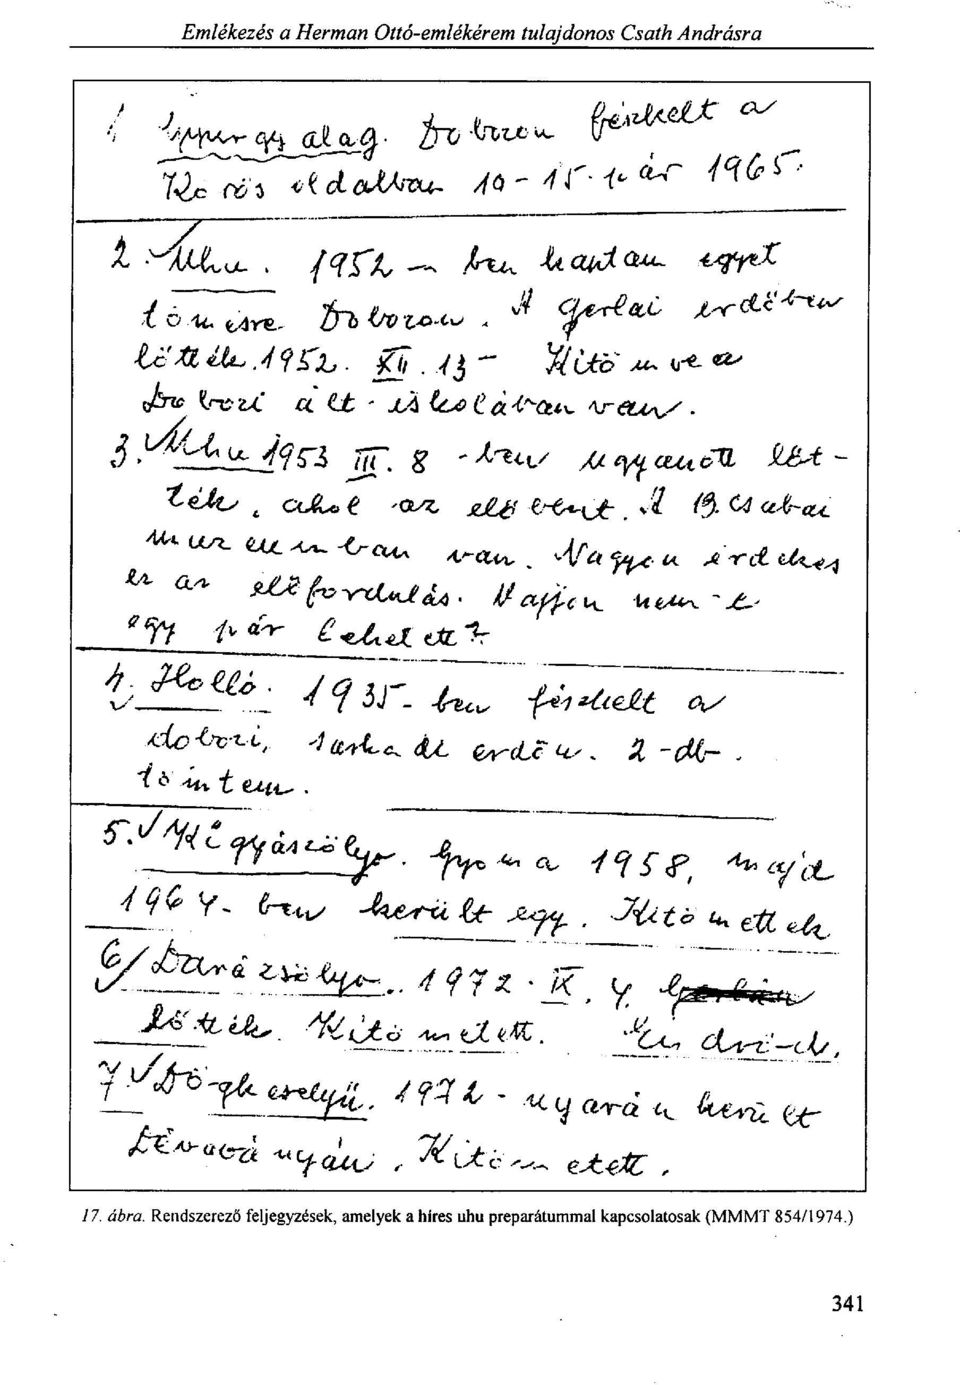 Emlékezés a Herman Ottó-emlékérem tulajdonos Csath Andrásra
1 alag. Dobozon fészkelt a
Körös oldalban 10-15. pár 1965.
2. Uhu. 1952 – ben hantam egyet
tömésre Dobozon. A Gerlai erdőben
lőtték. 1952. XII. 13 – Kitömve a
Dobozi ált. iskolában van.
3. Uhu 1953 III. 8 -ben ugyanott lőt-
ték, ahol az előbent. A B. Csabai
muzeumban van. Nagyon érdekes
ez az előfordulás. Vajjon nem-e
egy pár lehetett?
4. Holló. 1935- ben fészkelt a
dobozi, erdőn. 2 -db- .
tömtem.
5. Kigyászölyv. Gyoma 1958, majd
1964- ben került egy. Kitömettek
6/ Darázsölyv. 1972. IX. 4.
lőtték. Kitömetett. Endrőd.
7. Dögkeselyű. 1972 - nyarán került
Dévaványán. Kitömetett.
17. ábra. Rendszerező feljegyzések, amelyek a híres uhu preparátummal kapcsolatosak (MMMT 854/1974.)
341